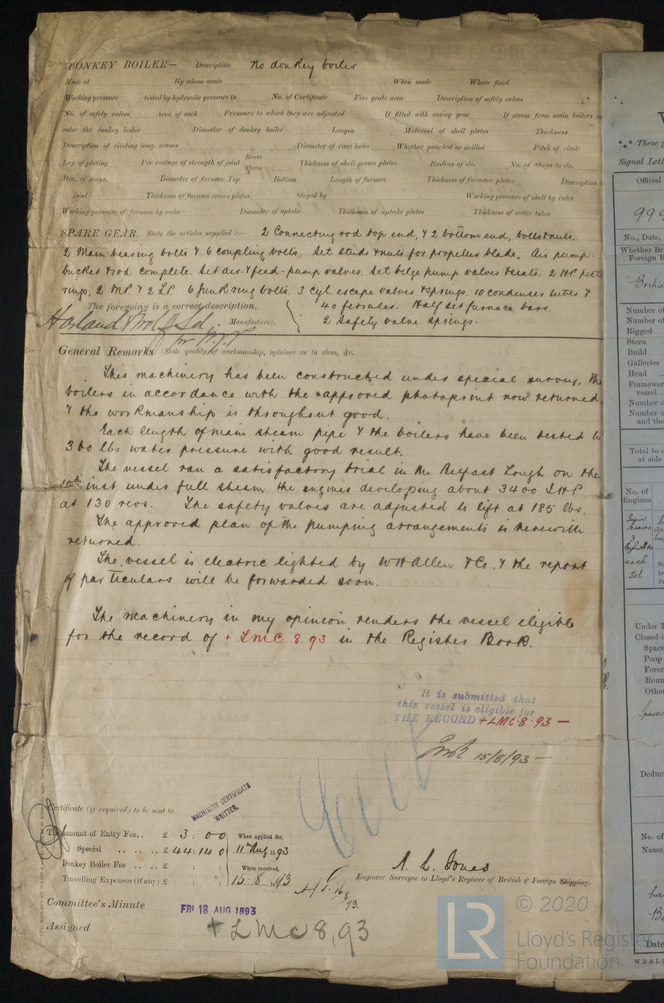 DONKEY BOILER— Description No donkey boiler
Made at By whom made When made Where fixed
Working pressure tested by hydraulic pressure to No. of Certificate Fire grate area Description of safety valves
No. of safety valves Area of each Pressure to which they are adjusted If fitted with easing gear If steam from main boilers can
enter the donkey boiler Diameter of donkey boiler Length Material of shell plates Thickness
Description of riveting long. seams Diameter of rivet holes Whether punched or drilled Pitch of rivets
Lap of plating Per centage of strength of joint Rivets Plates Thickness of shell crown plates Radius of do. No. of Stays to do.
Dia. of stays Diameter of furnace Top Bottom Length of furnace Thickness of furnace plates Description
joint Thickness of furnace crown plates Stayed by Working pressure of shell by rules
Working pressure of furnace by rules Diameter of uptake Thickness of uptake plates Thickness of water tubes
SPARE GEAR. State the articles supplied:— 2 Connecting rod top end, & 2 bottom end, bolts & nuts.
2 Main bearing bolts & 6 coupling bolts. Set studs & nuts for propeller blade. Air pump
bucket & rod complete. Set air & feed-pump valves. Set bilge pump valves & seats. 2 HP piston
rings, 2 MP & 2 LP 6 junk ring bolts. 3 cyl. escape valves & springs. 10 condenser tubes &
40 ferrules. Half set furnace bars.
2 Safety valve springs.
The foregoing is a correct description,
Harland & Wolff Ld Manufacturer.
General Remarks (State quality of workmanship, opinions as to class, &c.
This machinery has been constructed under special survey. The
boilers in accordance with the approved photoprint now returned
& the workmanship is throughout good.
Each length of main steam pipe & the boilers have been tested to
360 lbs water pressure with good result.
The vessel ran a satisfactory trial in the Belfast Lough on the
10th inst under full steam the engines developing about 3400 IHP
at 130 revs. The safety valves are adjusted to lift at 185 lbs.
The approved plan of the pumping arrangements is herewith
returned.
The vessel is electric lighted by WH Allen & Co. & the report
of particulars will be forwarded soon.
The machinery in my opinion renders the vessel eligible
for the record of + LMC 8.93 in the Register Book.
It is submitted that
this vessel is eligible for
THE RECORD + LMC 8.93 —
15/8/93 —
Certificate (if required) to be sent to
MACHINERY CERTIFICATE
WRITTEN.
The amount of Entry Fee.. £ 3 : 0 0 When applied for,
Special .. .. £ 44 : 14 0 11th Aug 1893
Donkey Boiler Fee .. .. £ When received,
Travelling Expenses (if any) £ 15-8 1893
A. L. Jones
Engineer Surveyor to Lloyd's Register of British & Foreign Shipping.
Committee's Minute FRI 18 AUG 1893
Assigned + LMC 8,93
© 2020
LR Lloyd's Register
Foundation
These
Signal Lett
Official
No., Date,
Whether Br
Foreign B
Number of
Number of
Rigged
Stern
Build
Galleries
Head
Framework
vessel
Number of
Number of
and the
Total to
at side
No. of
Engines
each
Set
Under T
Closed-i
Space
Poop
Forec
Roun
Other
Deduc
No. of
Name,
Date